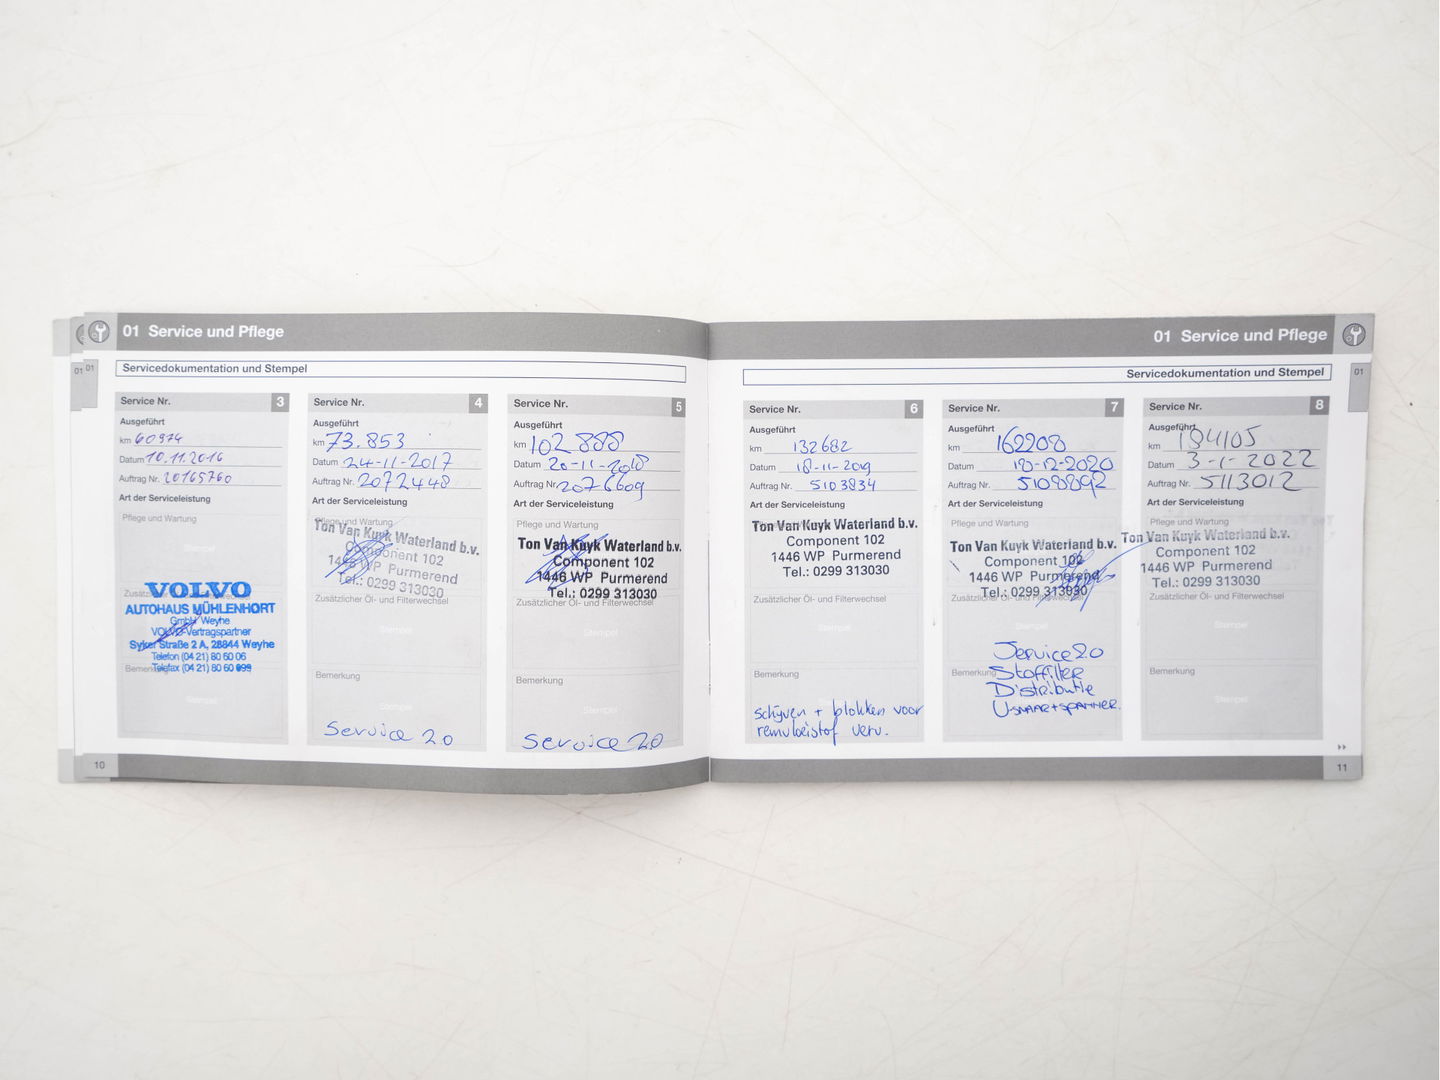 01 Service und Pflege
01
01
Servicedokumentation und Stempel
Service Nr. 3
Ausgeführt
km 60974
Datum 10.11.2016
Auftrag Nr. 20165760
Art der Serviceleistung
Pflege und Wartung
Stempel
VOLVO
AUTOHAUS MÜHLENHORT
GmbH Weyhe
VOLVO-Vertragspartner
Syker Straße 2 A, 28844 Weyhe
Telefon (04 21) 80 60 06
Telefax (04 21) 80 60 699
Stempel
Service Nr. 4
Ausgeführt
km 73.853
Datum 24-11-2017
Auftrag Nr. 2072448
Art der Serviceleistung
Pflege und Wartung
Ton Van Kuyk Waterland b.v.
Component 102
1446 WP Purmerend
Tel.: 0299 313030
Zusätzlicher Öl- und Filterwechsel
Stempel
Bemerkung
Stempel
Service 2.0
Service Nr. 5
Ausgeführt
km 102.888
Datum 20-11-2018
Auftrag Nr. 2076609
Art der Serviceleistung
Pflege und Wartung
Ton Van Kuyk Waterland b.v.
Component 102
1446 WP Purmerend
Tel.: 0299 313030
Zusätzlicher Öl- und Filterwechsel
Stempel
Bemerkung
Stempel
Service 2.0
10
01 Service und Pflege
01
Servicedokumentation und Stempel
Service Nr. 6
Ausgeführt
km 132682
Datum 18-11-2019
Auftrag Nr. 5103834
Art der Serviceleistung
Ton Van Kuyk Waterland b.v.
Component 102
1446 WP Purmerend
Tel.: 0299 313030
Zusätzlicher Öl- und Filterwechsel
Stempel
Bemerkung
schijven + blokken voor
remvloeistof verv.
Service Nr. 7
Ausgeführt
km 162208
Datum 18-12-2020
Auftrag Nr. 5108892
Art der Serviceleistung
Pflege und Wartung
Ton Van Kuyk Waterland b.v.
Component 102
1446 WP Purmerend
Tel.: 0299 313030
Zusätzlicher Öl- und Filterwechsel
Stempel
Service 2.0
Bemerkung Stoffilter
Distributie
Service Nr. 8
Ausgeführt
km 184105
Datum 3-1-2022
Auftrag Nr. 5113012
Art der Serviceleistung
Pflege und Wartung
Ton Van Kuyk Waterland b.v.
Component 102
1446 WP Purmerend
Tel.: 0299 313030
Zusätzlicher Öl- und Filterwechsel
Stempel
Bemerkung
Stempel
11